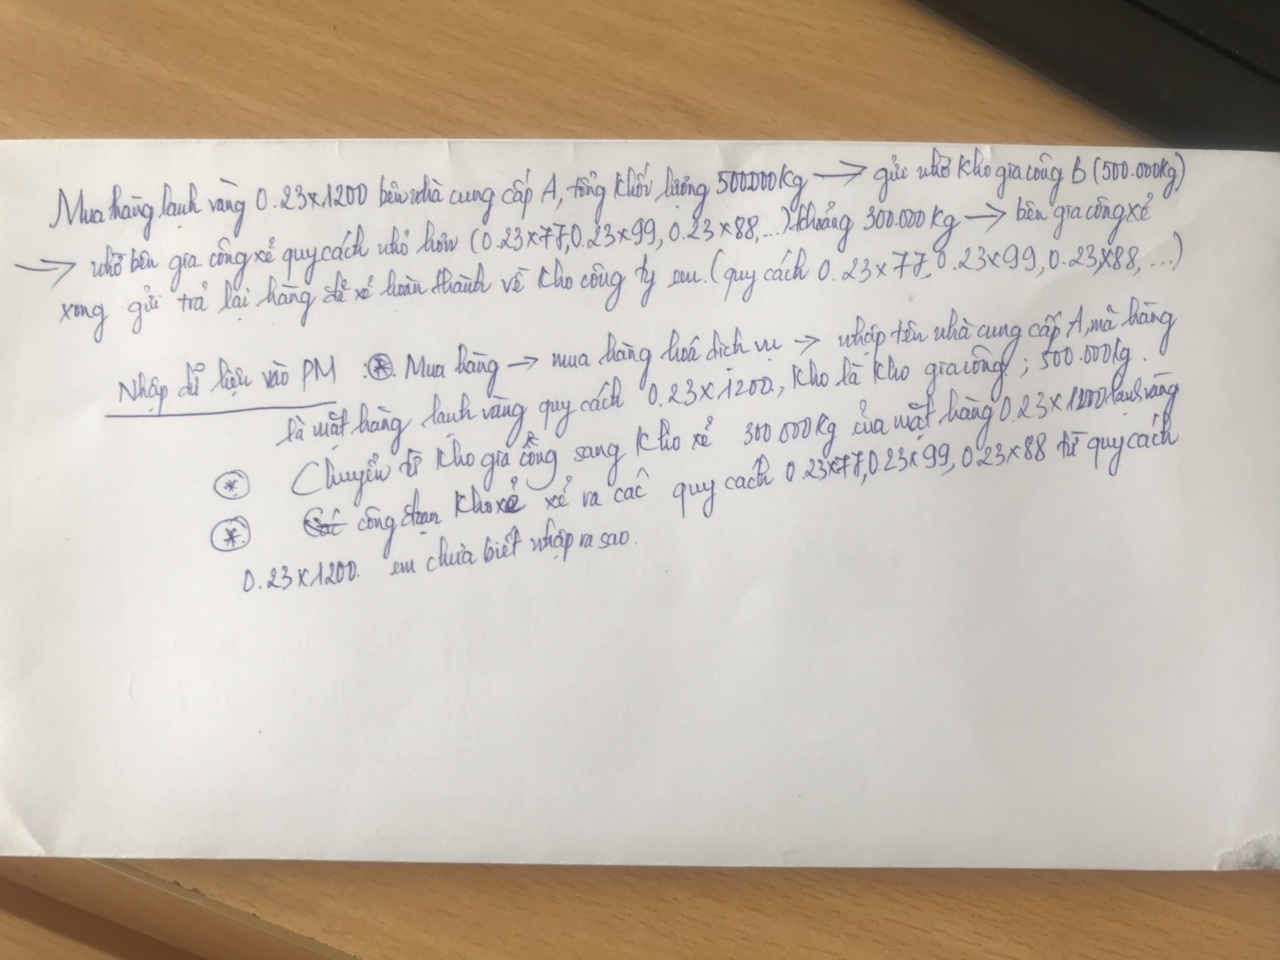 Mua hàng lạnh vàng 0.23x1200 bên nhà cung cấp A, tổng khối lượng 500.000kg → gửi nhờ kho gia công B (500.000kg)
→ nhờ bên gia công xẻ quy cách nhỏ hơn (0.23x77, 0.23x99, 0.23x88,...) khoảng 300.000kg → bên gia công xẻ
xong gửi trả lại hàng đã xẻ hoàn thành về kho công ty em. (quy cách 0.23x77, 0.23x99, 0.23x88, ...)
Nhập dữ liệu vào PM : * Mua hàng → mua hàng hoá dịch vụ → nhập tên nhà cung cấp A, mã hàng
là mặt hàng lạnh vàng quy cách 0.23x1200, kho là kho gia công ; 500.000kg.
* Chuyển từ kho gia công sang kho xẻ 300.000kg của mặt hàng 0.23x1200 lạnh vàng
* công đoạn kho xẻ xẻ ra các quy cách 0.23x77, 0.23x99, 0.23x88 từ quy cách
0.23x1200. em chưa biết nhập ra sao.